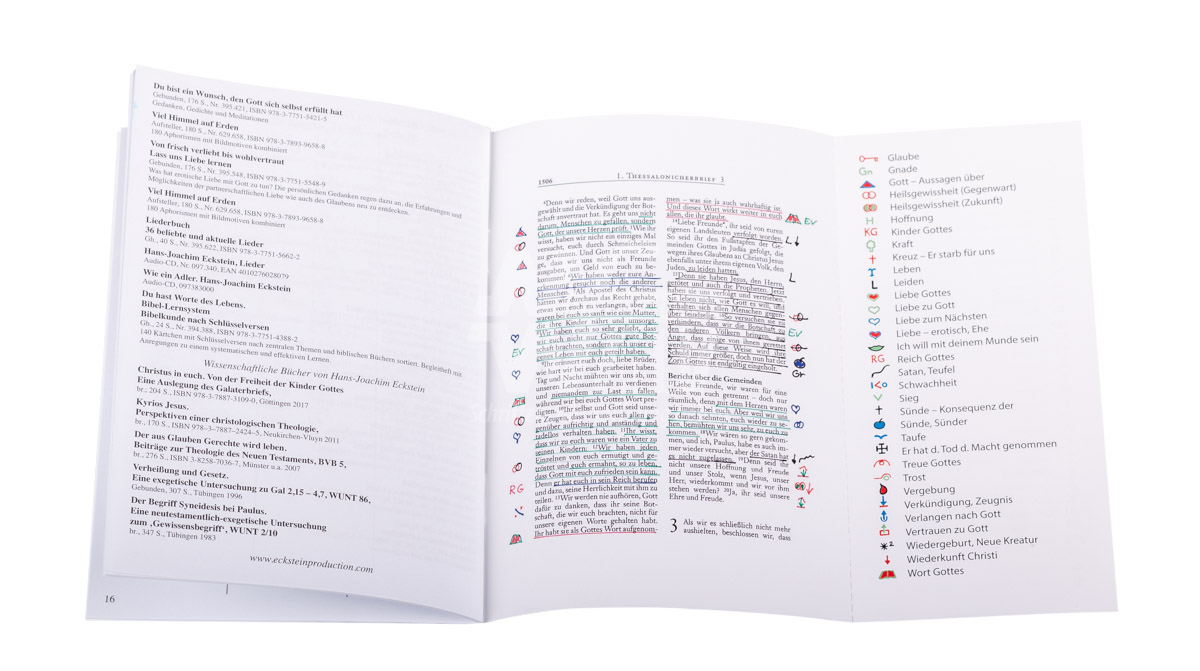 Du bist ein Wunsch, den Gott sich selbst erfüllt hat
Gebunden, 176 S., Nr. 395.421, ISBN 978-3-7751-5421-5
Gedanken, Gedichte und Meditationen
Viel Himmel auf Erden
Aufsteller, 180 S., Nr. 629.658, ISBN 978-3-7893-9658-8
180 Aphorismen mit Bildmotiven kombiniert
Von frisch verliebt bis wohlvertraut
Lass uns Liebe lernen
Gebunden, 176 S., Nr. 395.548, ISBN 978-3-7751-5548-9
Was hat erotische Liebe mit Gott zu tun? Die persönlichen Gedanken regen dazu an, die Erfahrungen und
Möglichkeiten der partnerschaftlichen Liebe wie auch des Glaubens neu zu entdecken.
Viel Himmel auf Erden
Aufsteller, 180 S., Nr. 629.658, ISBN 978-3-7893-9658-8
180 Aphorismen mit Bildmotiven kombiniert
Liederbuch
36 beliebte und aktuelle Lieder
Gh., 40 S., Nr. 395.622, ISBN 978-3-7751-5662-2
Hans-Joachim Eckstein, Lieder
Audio-CD, Nr. 097.340, EAN 4010276028079
Wie ein Adler. Hans-Joachim Eckstein
Audio-CD, 097383000
Du hast Worte des Lebens.
Bibel-Lernsystem
Bibelkunde nach Schlüsselversen
Gh., 24 S., Nr. 394.388, ISBN 978-3-7751-4388-2
140 Kärtchen mit Schlüsselversen nach zentralen Themen und biblischen Büchern sortiert. Begleitheft mit
Anregungen zu einem systematischen und effektiven Lernen.
Wissenschaftliche Bücher von Hans-Joachim Eckstein
Christus in euch. Von der Freiheit der Kinder Gottes
Eine Auslegung des Galaterbriefs,
br., 204 S., ISBN 978-3-7887-3109-0, Göttingen 2017
Kyrios Jesus.
Perspektiven einer christologischen Theologie,
br., 170 S., ISBN 978-3-7887-2424-5, Neukirchen-Vluyn 2011
Der aus Glauben Gerechte wird leben.
Beiträge zur Theologie des Neuen Testaments, BVB 5,
br., 276 S., ISBN 3-8258-7036-7, Münster u.a. 2007
Verheißung und Gesetz.
Eine exegetische Untersuchung zu Gal 2,15 – 4,7, WUNT 86,
Gebunden, 307 S., Tübingen 1996
Der Begriff Syneidesis bei Paulus.
Eine neutestamentlich-exegetische Untersuchung
zum ‚Gewissensbegriff‘, WUNT 2/10
br., 347 S., Tübingen 1983
www.ecksteinproduction.com
16
1506
1. THESSALONICHERBRIEF 3
⁴Denn wir reden, weil Gott uns aus-
gewählt und die Verkündigung der Bot-
schaft anvertraut hat. Es geht uns nicht
darum, Menschen zu gefallen, sondern
Gott, der unsere Herzen prüft. ⁵Wie ihr
wisst, haben wir nicht ein einziges Mal
versucht, euch durch Schmeicheleien
zu gewinnen. Und Gott ist unser Zeu-
ge, dass wir uns nicht als Freunde
ausgaben, um Geld von euch zu be-
kommen! ⁶Wir haben weder eure An-
erkennung gesucht noch die anderer
Menschen. ⁷Als Apostel des Christus
hätten wir durchaus das Recht gehabt,
etwas von euch zu verlangen, aber wir
waren bei euch so sanft wie eine Mutter,
die ihre Kinder nährt und umsorgt.
⁸Wir haben euch so sehr geliebt, dass
wir euch nicht nur Gottes gute Bot-
schaft brachten, sondern auch unser ei-
genes Leben mit euch geteilt haben.
⁹Ihr erinnert euch doch, liebe Brüder,
wie hart wir bei euch gearbeitet haben.
Tag und Nacht mühten wir uns ab, um
unseren Lebensunterhalt zu verdienen
und niemandem zur Last zu fallen,
während wir bei euch Gottes Wort pre-
digten. ¹⁰Ihr selbst und Gott seid unse-
re Zeugen, dass wir uns euch allen ge-
genüber aufrichtig und anständig und
tadellos verhalten haben. ¹¹Ihr wisst,
dass wir zu euch waren wie ein Vater zu
seinen Kindern: ¹²Wir haben jeden
Einzelnen von euch ermutigt und ge-
tröstet und euch ermahnt, so zu leben,
dass Gott mit euch zufrieden sein kann.
Denn er hat euch in sein Reich berufen
und dazu, seine Herrlichkeit mit ihm zu
teilen. ¹³Wir werden nie aufhören, Gott
dafür zu danken, dass ihr seine Bot-
schaft, die wir euch brachten, nicht für
unsere eigenen Worte gehalten habt.
Ihr habt sie als Gottes Wort aufgenom-
Ev
RG
men – was sie ja auch wahrhaftig ist.
Und dieses Wort wirkt weiter in euch
allen, die ihr glaubt.
¹⁴Liebe Freunde*, ihr seid von euren
eigenen Landsleuten verfolgt worden.
So seid ihr den Fußstapfen der Ge-
meinden Gottes in Judäa gefolgt, die
wegen ihres Glaubens an Christus Jesus
ebenfalls unter ihrem eigenen Volk, den
Juden, zu leiden hatten.
¹⁵Denn sie haben Jesus, den Herrn,
getötet und auch die Propheten. Jetzt
haben sie uns verfolgt und vertrieben.
Sie leben nicht, wie Gott es will, und
verhalten sich allen Menschen gegen-
über feindselig. ¹⁶So versuchen sie zu
verhindern, dass wir die Botschaft zu
den anderen Völkern bringen, aus
Angst, dass einige von ihnen gerettet
werden. Auf diese Weise wird ihre
Schuld immer größer, doch nun hat der
Zorn Gottes sie endgültig eingeholt.
Bericht über die Gemeinden
¹⁷Liebe Freunde, wir waren für eine
Weile von euch getrennt – doch nur
räumlich, denn mit dem Herzen waren
wir immer bei euch. Aber weil wir uns
so danach sehnten, euch wieder zu se-
hen, bemühten wir uns sehr, zu euch zu
kommen. ¹⁸Wir wären so gern gekom-
men, und ich, Paulus, habe es auch im-
mer wieder versucht, aber der Satan hat
es nicht zugelassen. ¹⁹Denn seid ihr
nicht unsere Hoffnung und Freude
und unser Stolz, wenn Jesus, unser
Herr, wiederkommt und wir vor ihm
stehen werden? ²⁰Ja, ihr seid unsere
Ehre und Freude.
3 Als wir es schließlich nicht mehr
aushielten, beschlossen wir, dass
Ev
L
L
Ev
Gr
L
Glaube
Gn Gnade
Gott – Aussagen über
Heilsgewissheit (Gegenwart)
Heilsgewissheit (Zukunft)
H Hoffnung
KG Kinder Gottes
Kraft
Kreuz – Er starb für uns
Leben
L Leiden
Liebe Gottes
Liebe zu Gott
Liebe zum Nächsten
Liebe – erotisch, Ehe
Ich will mit deinem Munde sein
RG Reich Gottes
Satan, Teufel
Schwachheit
Sieg
Sünde – Konsequenz der
Sünde, Sünder
Taufe
Er hat d. Tod d. Macht genommen
Treue Gottes
Trost
Vergebung
Verkündigung, Zeugnis
Verlangen nach Gott
Vertrauen zu Gott
*2 Wiedergeburt, Neue Kreatur
Wiederkunft Christi
Wort Gottes